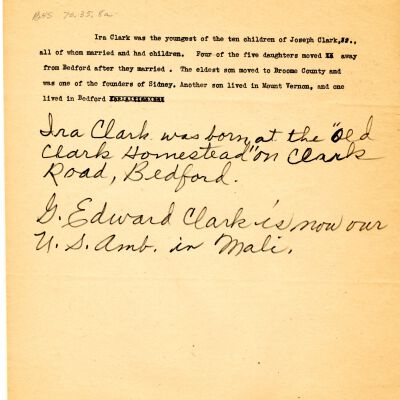 BHS 70.35.8a
Ira Clark was the youngest of the ten children of Joseph Clark,Sr.,
all of whom married and had children. Four of the five daughters moved away
from Bedford after they married . The eldest son moved to Broome County and
was one of the founders of Sidney. Another son lived in Mount Vernon, and one
lived in Bedford
Ira Clark was born at the "Old
Clark Homestead" on Clark
Road, Bedford.
G. Edward Clark is now our
U. S. Amb. in Mali.